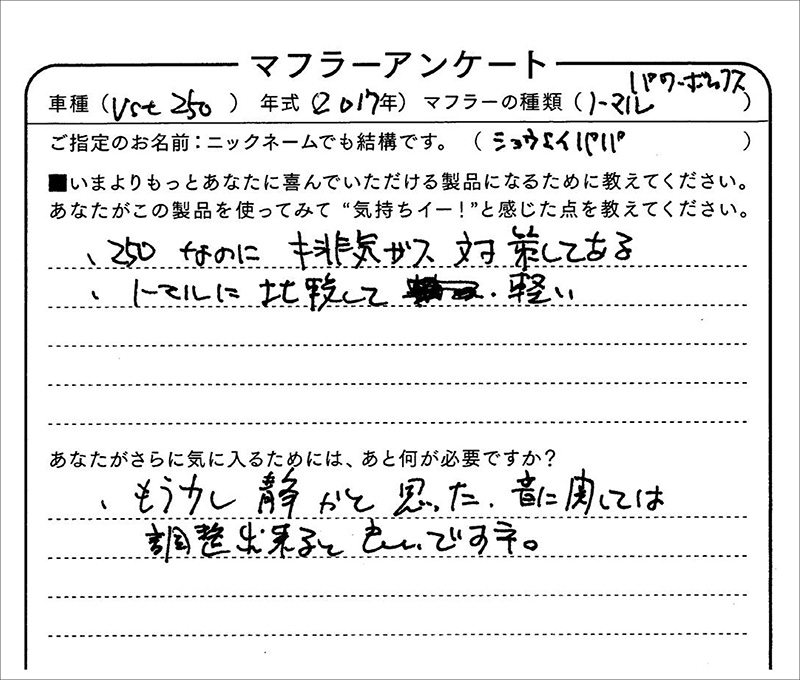 マフラーアンケート
車種（Vst 250） 年式（2017年）マフラーの種類（ノーマル パワーボックス）
ご指定のお名前：ニックネームでも結構です。（ショウエイパパ）
■いまよりもっとあなたに喜んでいただける製品になるために教えてください。
あなたがこの製品を使ってみて“気持ちイー！”と感じた点を教えてください。
、250 なのに 排気ガス 対策してある
、ノーマルに 比較して 、軽い
あなたがさらに気に入るためには、あと何が必要ですか？
、もう少し 静かと 思った、音に関しては
調整出来ると もいいですネ。